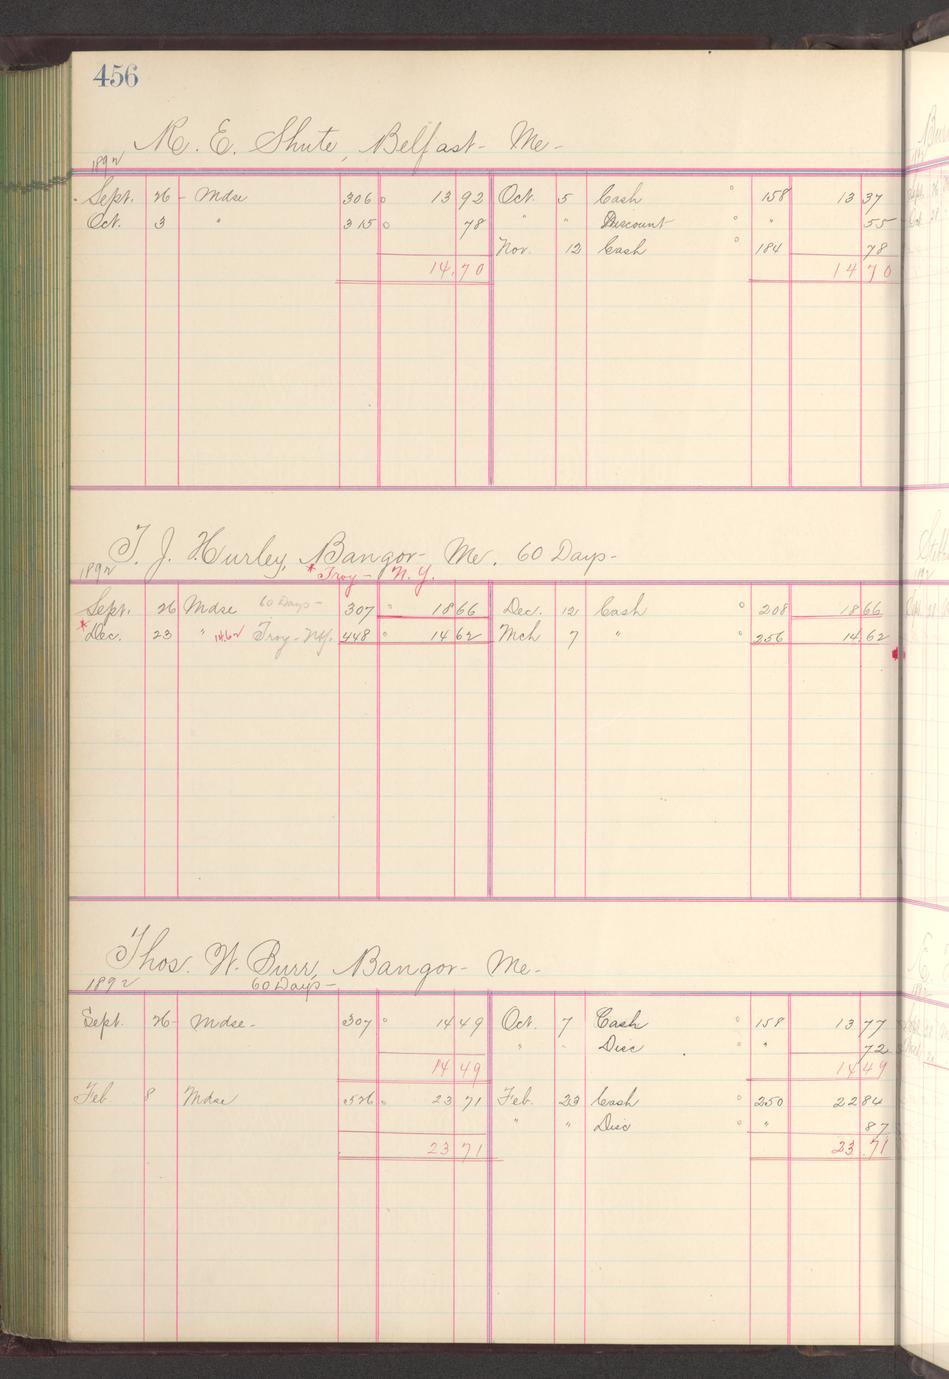 456
R. E. Shute, Belfast - Me -
1892
Sept. 26 - Mdse 306 13 92 Oct. 5 Cash 158 13 37
Oct. 3 " 315 78 " " Discount " 55
Nov. 12 Cash 184 78
14.70 14 70
T. J. Hurley, Bangor - Me. 60 Days -
1892 * Troy - N. Y.
Sept. 26 Mdse 60 Days - 307 18 66 Dec. 12 Cash 208 18 66
* Dec. 23 " 14.62 Troy - N.Y. 448 14 62 Mch 7 " 256 14.62
Thos. W. Burr, Bangor - Me -
1892 60 Days -
Sept. 26 - Mdse - 307 14 49 Oct. 7 Cash 158 13 77
" " Disc " 72
14 49 14 49
Feb 8 Mdse 526 23 71 Feb. 23 Cash 250 22 84
" " Disc " 87
23 71 23.71